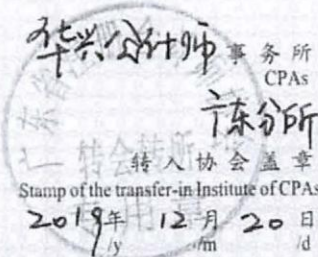 华兴会计师事务所
CPAs
广东分所
转入协会盖章
Stamp of the transfer-in Institute of CPAs
2019年 12月 20日
/y /m /d
转会转所
专用章